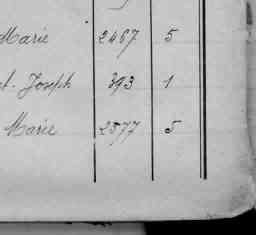 Marie 2467 5
t. Joseph 393 1
Marie 2577 5